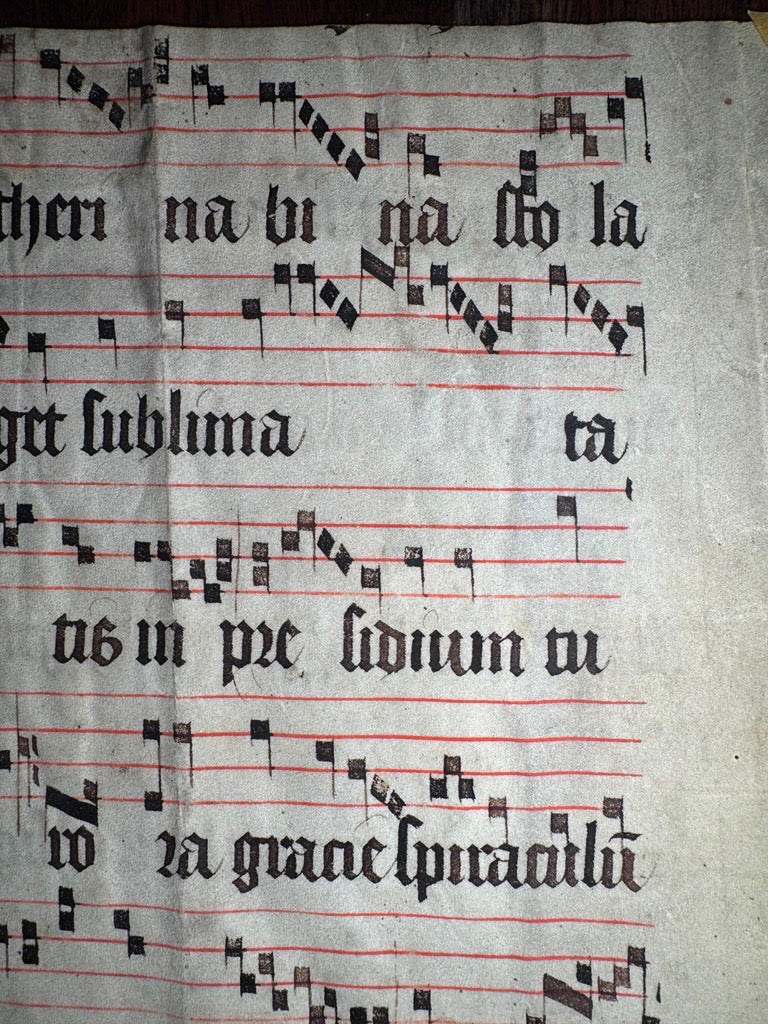 theri na bi na sto la
get sublima ta
tis in pre sidium tu
ro ra gracie spiraculū